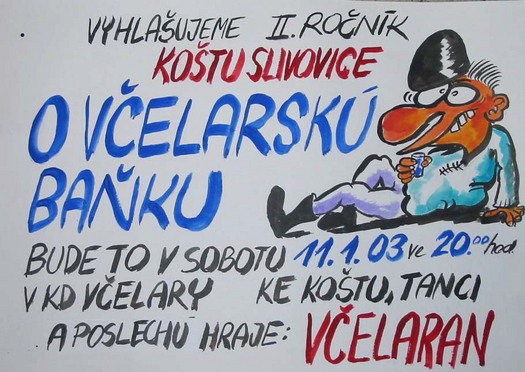 VYHLAŠUJEME II. ROČNÍK
KOŠTU SLIVOVICE
O VČELARSKÚ
BAŇKU
BUDE TO V SOBOTU 11.1.03 ve 20.00 hod.
V KD VČELARY KE KOŠTU, TANCI
A POSLECHU HRAJE: VČELARAN